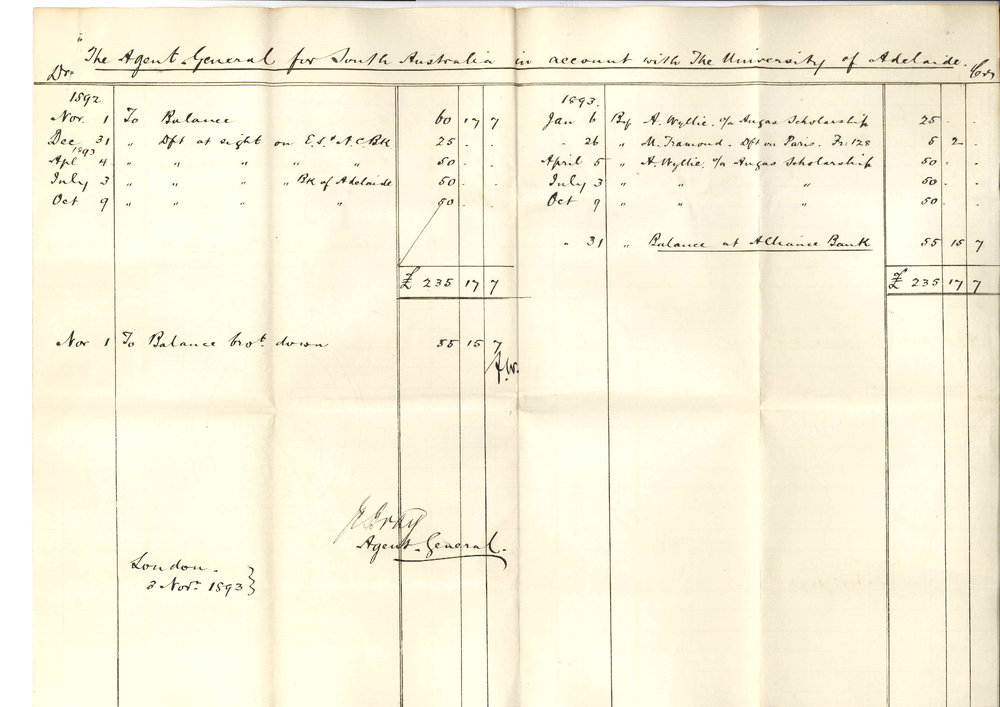 The Agent-General for South Australia in account with The University of Adelaide.
Dr. Cr.
1892
Nov. 1 To Balance 60 17 7
Dec 31 " Dft at sight on E.S. & A.C. Bk 25 . .
1893
Apl 4 " " " " " 50 . .
July 3 " " " " Bk of Adelaide 50 . .
Oct 9 " " " " 50 . .
£ 235 17 7
Nov 1 To Balance brot. down 55 15 7
A.W.
1893.
Jan 6 By A. Wyllie. c/a Angas Scholarship 25 . .
" 26 " M. Tramond. Dft on Paris. Fr. 128 5 2 .
April 5 " A. Wyllie. c/a Angas Scholarship 50 . .
July 3 " " " 50 . .
Oct 9 " " " 50 . .
" 31 " Balance at Alliance Bank 55 15 7
£ 235 17 7
Agent-General.
London.
3 Novr. 1893